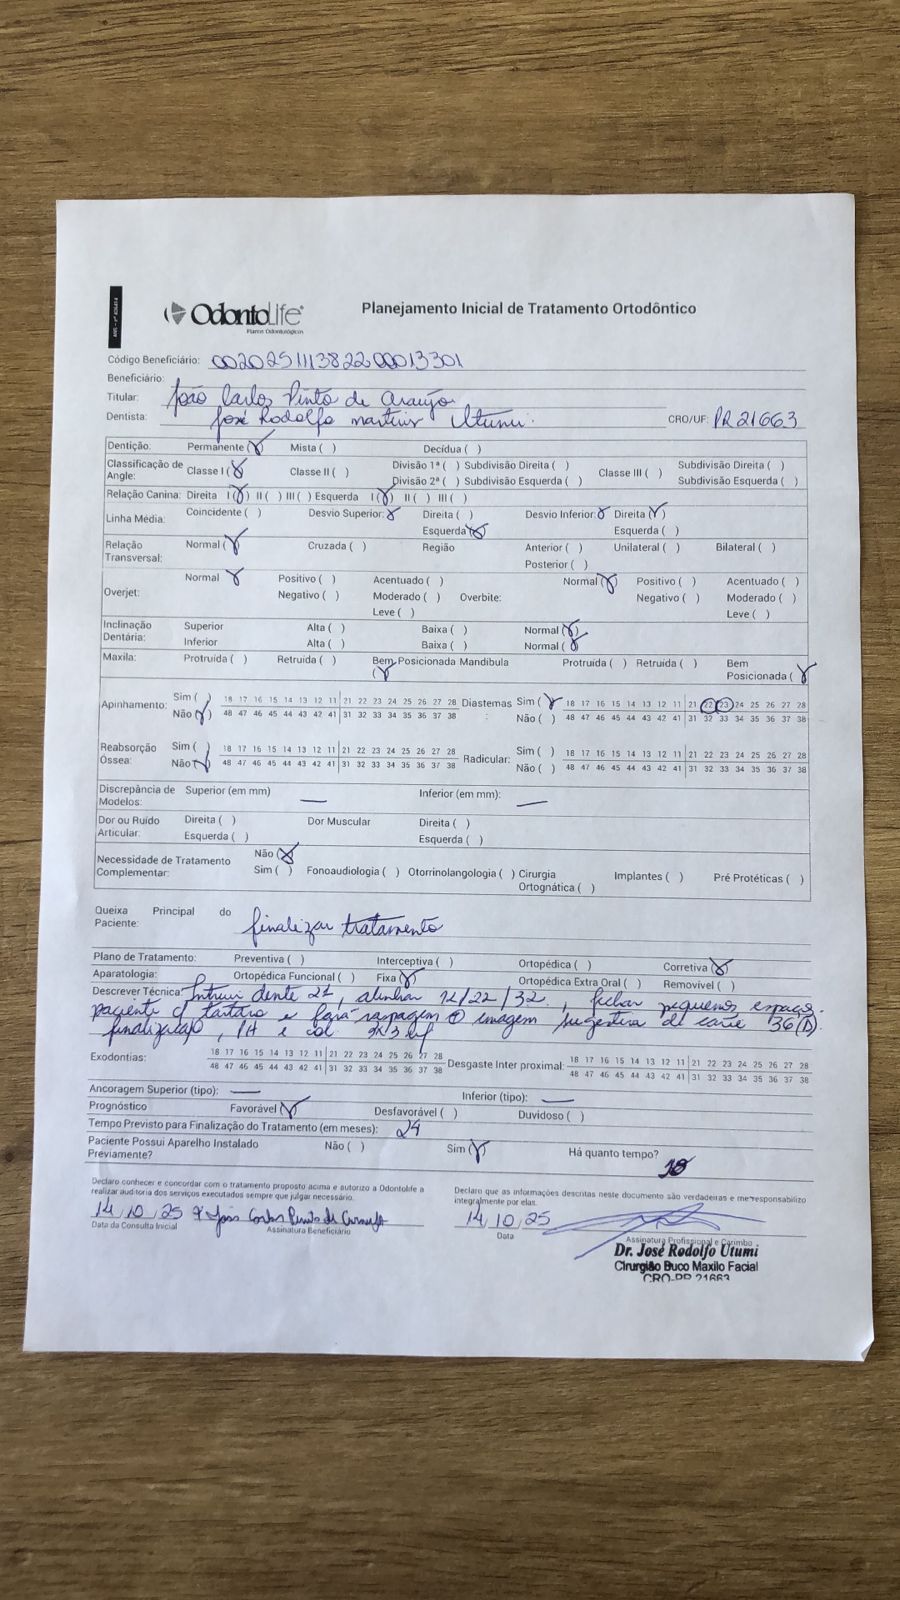 OdontoLife
Planos Odontológicos
Planejamento Inicial de Tratamento Ortodôntico
Código Beneficiário: 00202511138220001 3301
Beneficiário:
Titular: João Carlos Pinto de Araújo
Dentista: José Rodolfo martins Utumi. CRO/UF: PR 21663
Dentição: Permanente (X) Mista ( ) Decídua ( )
Classificação de Angle: Classe I (X) Classe II ( ) Divisão 1ª ( ) Subdivisão Direita ( ) Classe III ( ) Subdivisão Direita ( )
Divisão 2ª ( ) Subdivisão Esquerda ( ) Subdivisão Esquerda ( )
Relação Canina: Direita I (X) II ( ) III ( ) Esquerda I (X) II ( ) III ( )
Linha Média: Coincidente ( ) Desvio Superior: X Direita ( ) Desvio Inferior: X Direita (X)
Esquerda (X) Esquerda ( )
Relação Transversal: Normal (X) Cruzada ( ) Região Anterior ( ) Unilateral ( ) Bilateral ( )
Posterior ( )
Normal X Positivo ( ) Acentuado ( ) Normal (X) Positivo ( ) Acentuado ( )
Overjet: Negativo ( ) Moderado ( ) Overbite: Negativo ( ) Moderado ( )
Leve ( ) Leve ( )
Inclinação Dentária: Superior Alta ( ) Baixa ( ) Normal (X)
Inferior Alta ( ) Baixa ( ) Normal (X)
Maxila: Protruída ( ) Retruída ( ) Bem Posicionada (X) Mandíbula Protruída ( ) Retruída ( ) Bem Posicionada (X)
Apinhamento: Sim ( ) 18 17 16 15 14 13 12 11 21 22 23 24 25 26 27 28 Diastemas: Sim (X) 18 17 16 15 14 13 12 11 21 22 23 24 25 26 27 28
Não (X) 48 47 46 45 44 43 42 41 31 32 33 34 35 36 37 38 Não ( ) 48 47 46 45 44 43 42 41 31 32 33 34 35 36 37 38
Reabsorção Óssea: Sim ( ) 18 17 16 15 14 13 12 11 21 22 23 24 25 26 27 28 Radicular: Sim ( ) 18 17 16 15 14 13 12 11 21 22 23 24 25 26 27 28
Não (X) 48 47 46 45 44 43 42 41 31 32 33 34 35 36 37 38 Não ( ) 48 47 46 45 44 43 42 41 31 32 33 34 35 36 37 38
Discrepância de Modelos: Superior (em mm) — Inferior (em mm): —
Dor ou Ruído Articular: Direita ( ) Dor Muscular Direita ( )
Esquerda ( ) Esquerda ( )
Necessidade de Tratamento Complementar: Não (X)
Sim ( ) Fonoaudiologia ( ) Otorrinolangologia ( ) Cirurgia Ortognática ( ) Implantes ( ) Pré Protéticas ( )
Queixa Principal do Paciente: finalizar tratamento
Plano de Tratamento: Preventiva ( ) Interceptiva ( ) Ortopédica ( ) Corretiva (X)
Aparatologia: Ortopédica Funcional ( ) Fixa (X) Ortopédica Extra Oral ( ) Removível ( )
Descrever Técnica: Intruir dente 21, alinhar 12/22/32, fechar pequenos espaços.
paciente c/ tártaro e fará raspagem imagem sugestiva de cárie 36(D).
finalização, 3x3 inf
Exodontias: 18 17 16 15 14 13 12 11 21 22 23 24 25 26 27 28 Desgaste Inter proximal: 18 17 16 15 14 13 12 11 21 22 23 24 25 26 27 28
48 47 46 45 44 43 42 41 31 32 33 34 35 36 37 38 48 47 46 45 44 43 42 41 31 32 33 34 35 36 37 38
Ancoragem Superior (tipo): — Inferior (tipo): —
Prognóstico Favorável (X) Desfavorável ( ) Duvidoso ( )
Tempo Previsto para Finalização do Tratamento (em meses): 24
Paciente Possui Aparelho Instalado Previamente? Não ( ) Sim (X) Há quanto tempo?
Declaro conhecer e concordar com o tratamento proposto acima e autorizo a Odontolife a
realizar auditoria dos serviços executados sempre que julgar necessário.
14 10 25 João Carlos Pinto de Araujo
Data da Consulta Inicial Assinatura Beneficiário
Declaro que as informações descritas neste documento são verdadeiras e me responsabilizo
integralmente por elas.
14 10 25
Data Assinatura Profissional e Carimbo
Dr. José Rodolfo Utumi
Cirurgião Buco Maxilo Facial
CRO-PR 21663